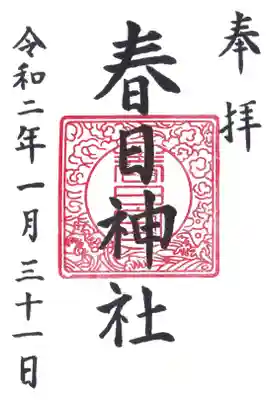 奉拝
春日神社
令和二年一月三十一日